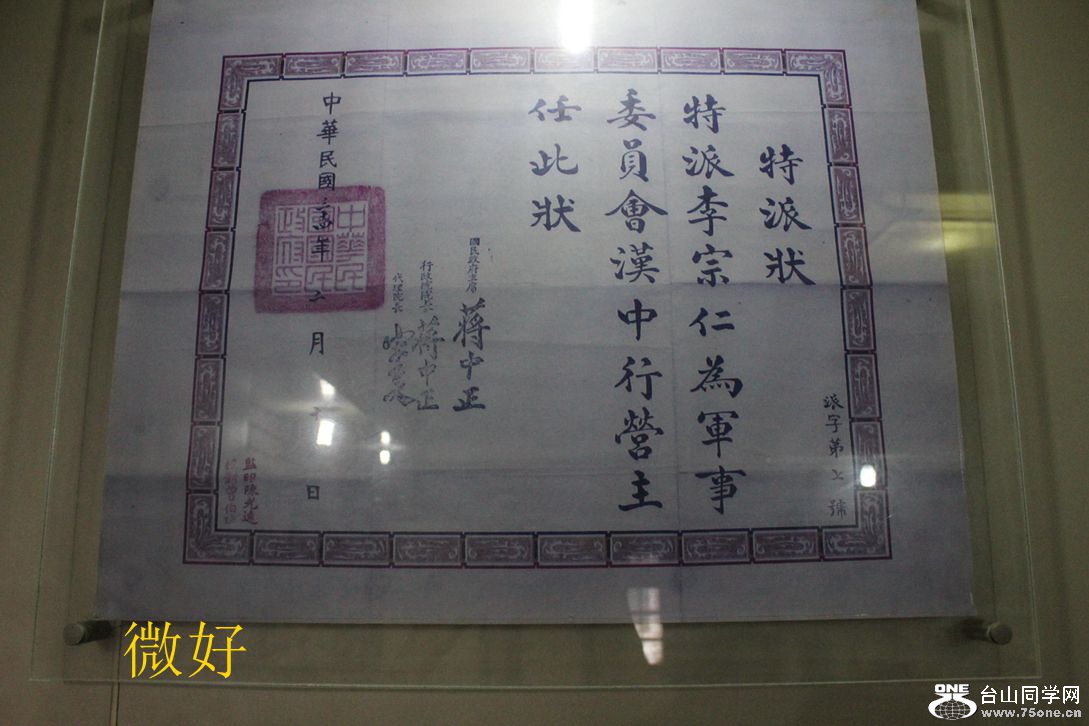 特派狀
特派李宗仁為軍事
委員會漢中行營主
任此狀
國民政府主席 蔣中正
行政院院長 蔣中正
代理院長
中華民國三十四年二月 日
派字第 號
監印陳光遠
中華民國政府印
微好
ONE 台山同学网
www.75one.cn